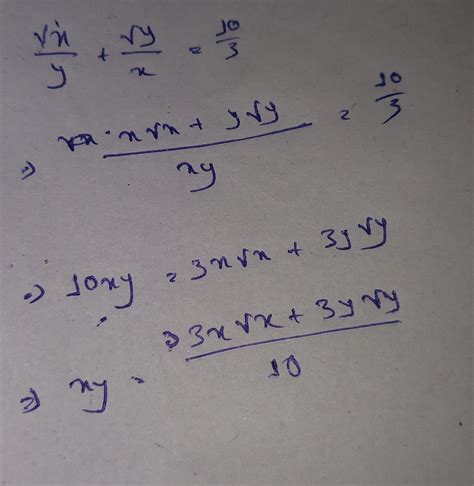 √x/y + √y/x = 10/3
⇒ x√x + y√y / xy = 10/3
⇒ 10xy = 3x√x + 3y√y
⇒ xy = 3x√x + 3y√y / 10